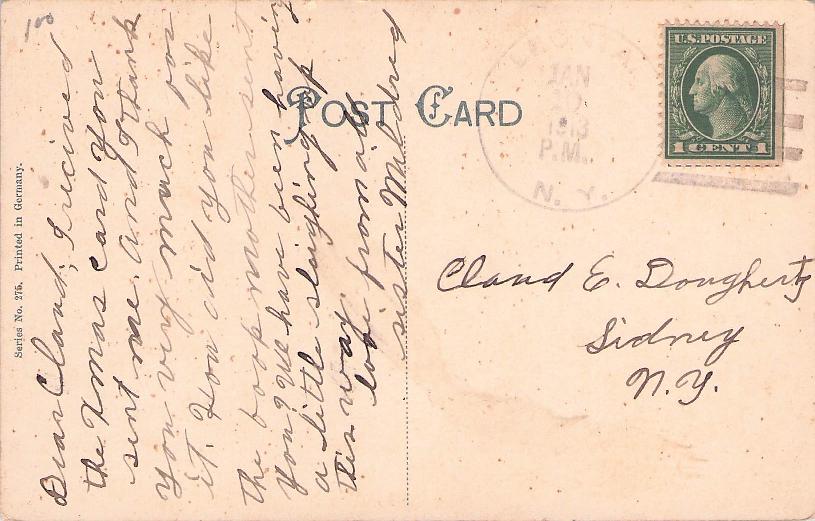 100
U.S. POSTAGE
1 CENT 1
JAN
1913
P.M.
N. Y.
POST CARD
Series No. 275. Printed in Germany.
Dear Claud, I recived
the Xmas card you
sent me. And I thank
you very much for
it. How did you like
the book mother sent
you? We have been having
a little sleighing up
this way.
love from all
sister Mildred
Claud E. Dougherty
Sidney
N.Y.